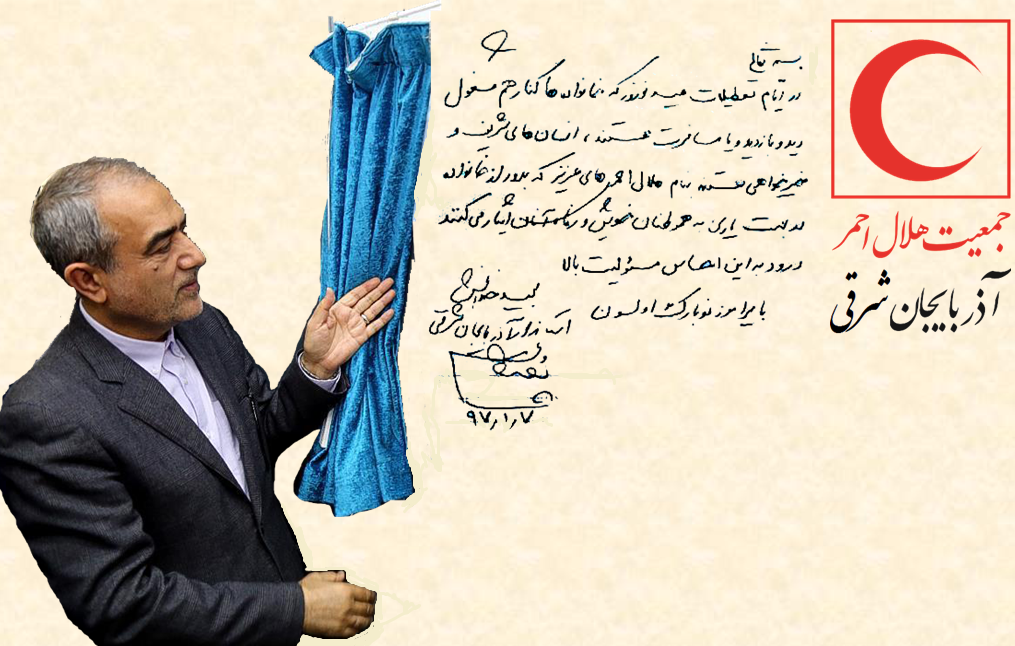 بسمه تعالی
در ایام تعطیلات عید نوروز که خانواده ها کنار هم مشغول
دید و بازدید و یا مسافرت هستند، انسان های شریف و
خیرخواهی هستند بنام هلال احمرهای عزیز که بدور از خانواده
مدت یاری به هموطنان خویش و آنان ایثار می کنند
درود به این احساس مسئولیت بالا
بایرامیز نوبارک اولسون
مجید خدابخش
استاندار آذربایجان شرقی
۹۷/۱/۷
جمعیت هلال احمر
آذربایجان شرقی